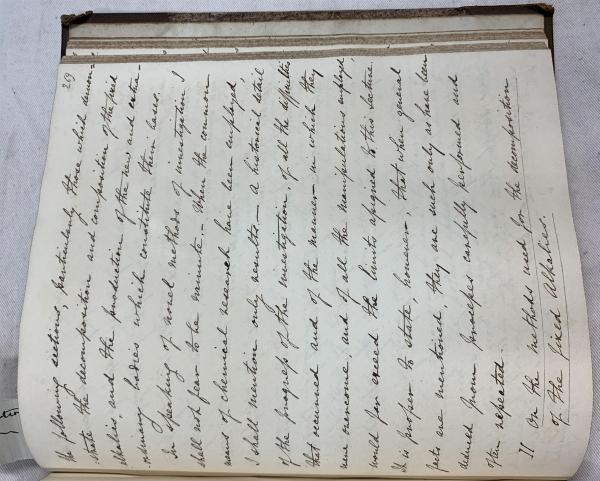 269
the following sections, particularly those which demon-
strate the decomposition and composition of the fixed
alkalies, and the production of the new and extra-
ordinary bodies which constitute their bases.
In speaking of novel methods of investigation I
shall not fear to be minute. When the common
means of chemical research have been employed,
I shall mention only results – A historical detail
of the progress of the investigation, of all the difficulties
that occurred and of the manner in which they
were overcome and of all the manipulations employed,
would far exceed the limits assigned to this lecture.
It is proper to state, however, that when general
facts are mentioned, they are such only as have been
deduced from processes carefully performed and
often repeated.
II On the methods used for the decomposition
of the fixed Alkalies.